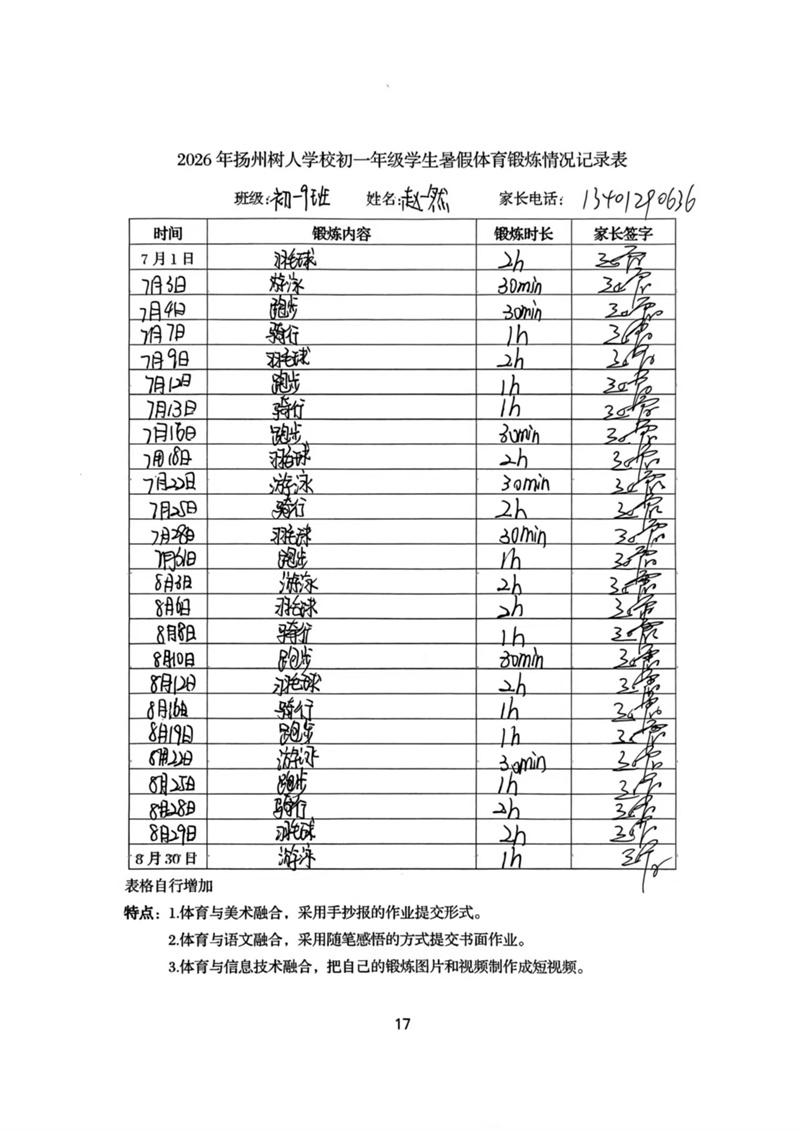 2026 年扬州树人学校初一年级学生暑假体育锻炼情况记录表
班级:初一9班 姓名:赵一然 家长电话: 13401290636
时间 锻炼内容 锻炼时长 家长签字
7 月 1 日 羽毛球 2h
7月3日 游泳 30min
7月4日 跑步 30min
7月7日 骑行 1h
7月9日 羽毛球 2h
7月12日 跑步 1h
7月13日 骑行 1h
7月16日 跑步 30min
7月18日 羽毛球 2h
7月22日 游泳 30min
7月25日 骑行 2h
7月28日 羽毛球 30min
7月31日 跑步 1h
8月3日 游泳 2h
8月6日 羽毛球 2h
8月8日 骑行 1h
8月10日 跑步 30min
8月12日 羽毛球 2h
8月16日 骑行 1h
8月19日 跑步 1h
8月22日 游泳 30min
8月25日 跑步 1h
8月28日 骑行 2h
8月29日 羽毛球 2h
8 月 30 日 游泳 1h
表格自行增加
特点：1.体育与美术融合，采用手抄报的作业提交形式。
2.体育与语文融合，采用随笔感悟的方式提交书面作业。
3.体育与信息技术融合，把自己的锻炼图片和视频制作成短视频。
17